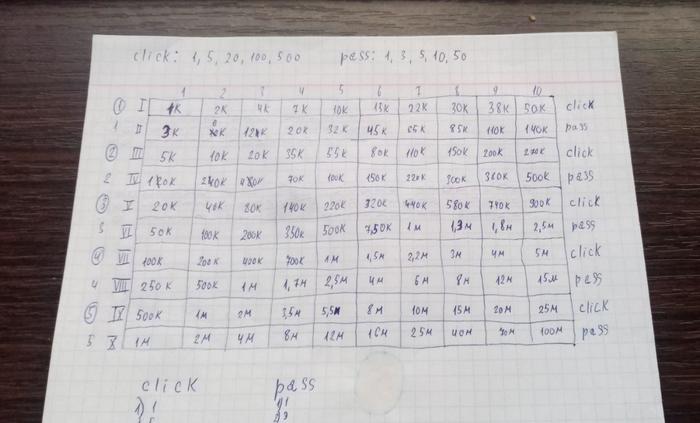 click: 1, 5, 20, 100, 500 pass: 1, 3, 5, 10, 50
1 2 3 4 5 6 7 8 9 10
① I 1K 2K 4K 7K 10K 13K 22K 30K 38K 50K click
1 II 3K 6K 12K 20K 32K 45K 65K 85K 110K 140K pass
② III 5K 10K 20K 35K 55K 80K 110K 150K 200K 270K click
2 IV 70K 100K 150K 220K 300K 380K 500K pass
③ V 20K 40K 80K 140K 220K 320K 440K 580K 740K 900K click
3 VI 50K 100K 200K 350K 500K 750K 1M 1,3M 1,8M 2,5M pass
④ VII 100K 200K 400K 700K 1M 1,5M 2,2M 3M 4M 5M click
4 VIII 250K 500K 1M 1,7M 2,5M 4M 6M 8M 12M 15M pass
⑤ IX 500K 1M 2M 3,5M 5,5M 8M 10M 15M 20M 25M click
5 X 1M 2M 4M 8M 12M 16M 25M 40M 70M 100M pass
click pass
1) 1 1) 1
2) 3